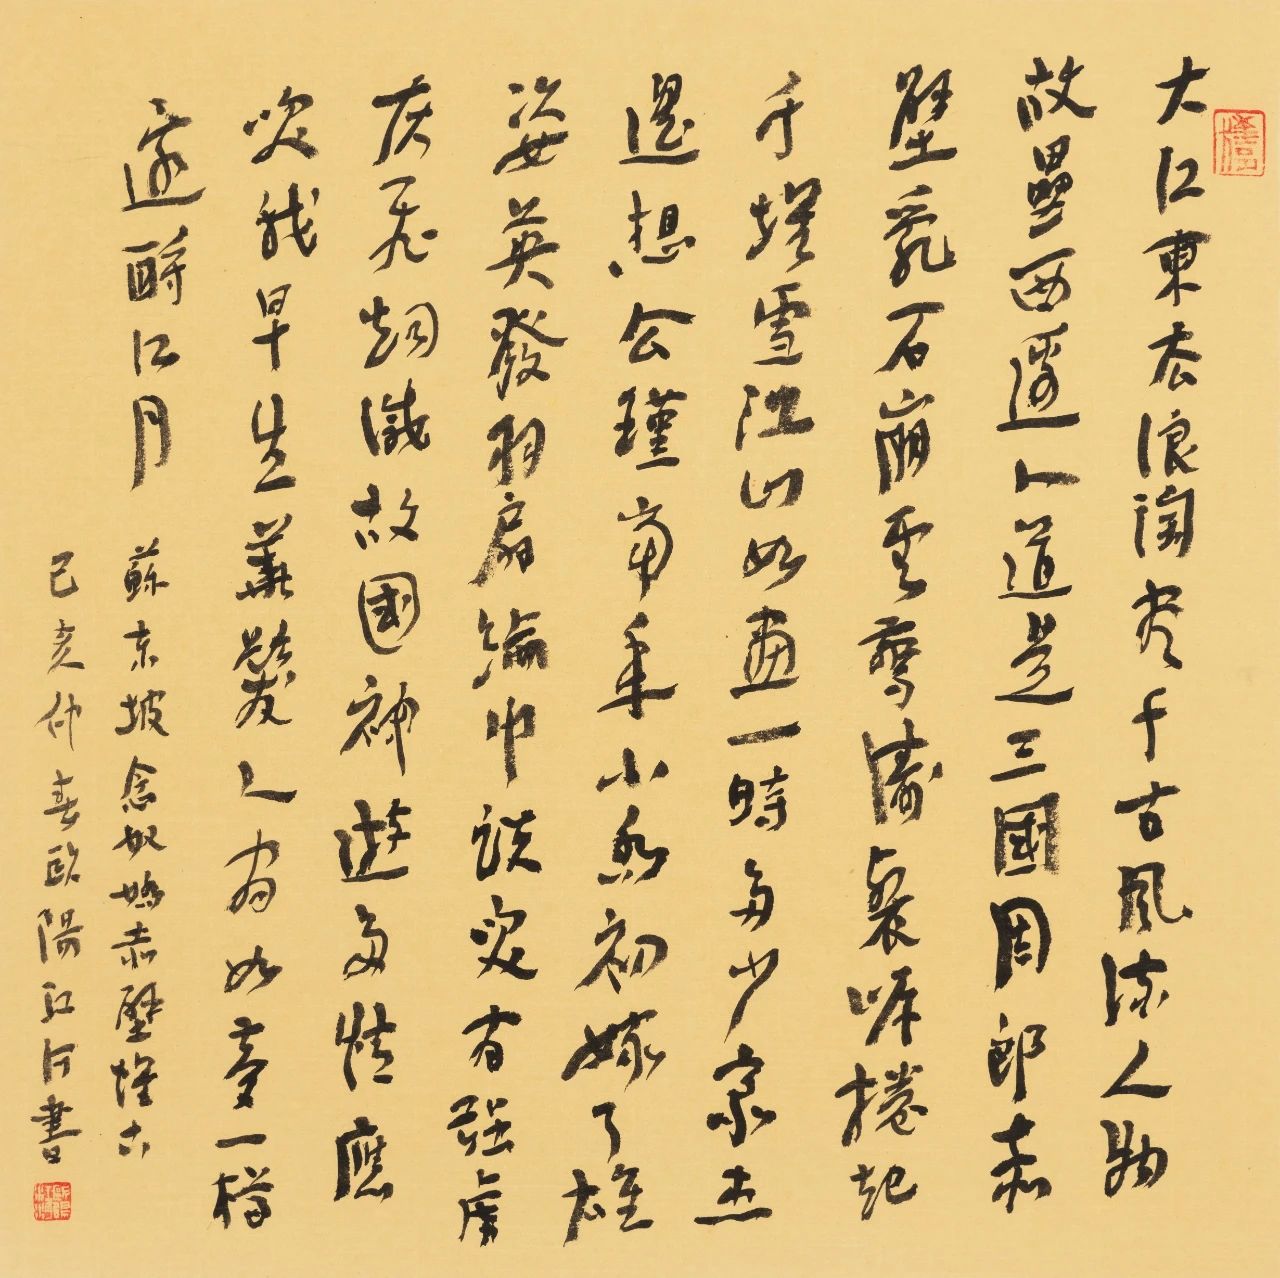 大江東去浪淘尽千古風流人物
故壘西邊人道是三國周郎赤
壁亂石崩雲驚濤裂岸捲起
千堆雪江山如畫一時多少豪杰
遥想公瑾當年小喬初嫁了雄
姿英發羽扇綸巾談笑間强虜
灰飛烟滅故國神遊多情應
笑我早生華髮人間如夢一樽
還酹江月 蘇東坡念奴嬌赤壁懷古
己亥仲春歐陽江河書